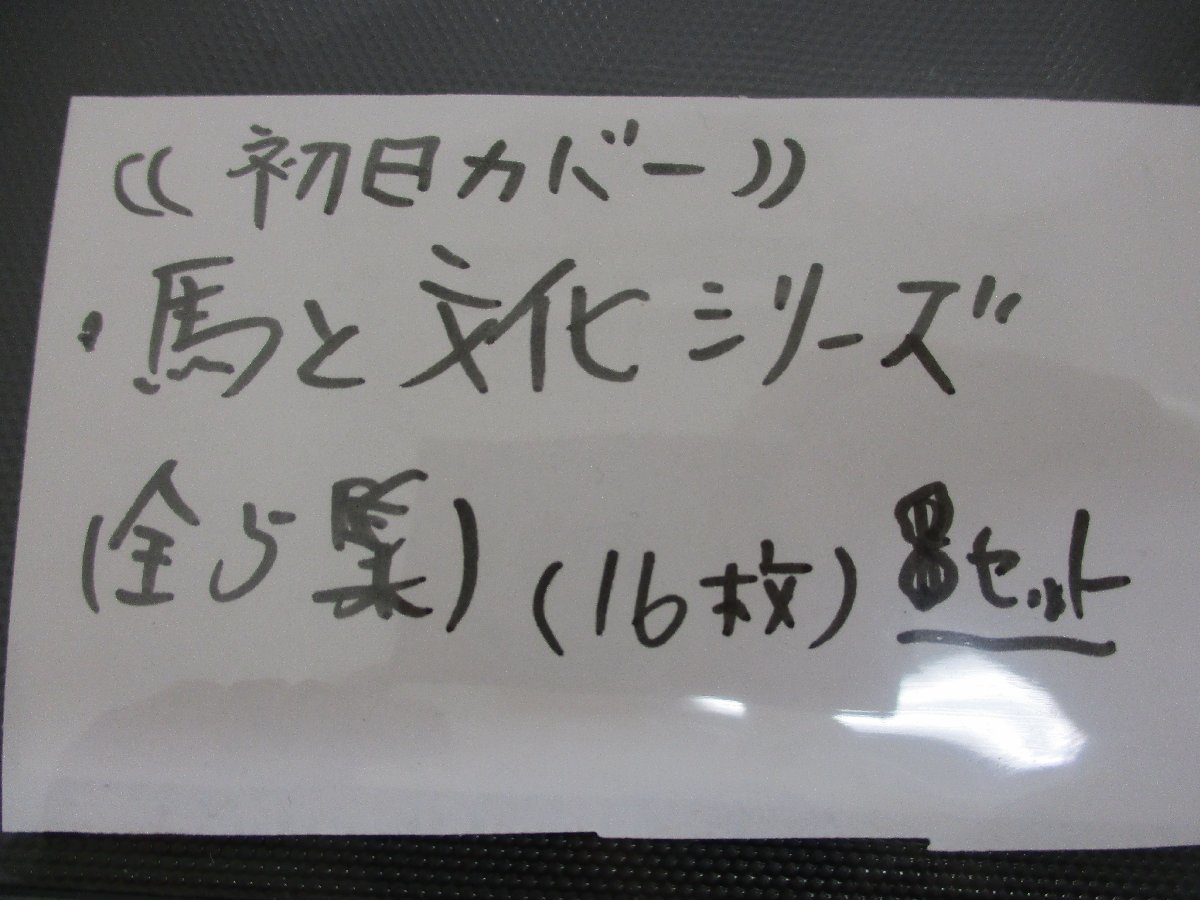 《初日カバー》
・馬と文化シリーズ
(全5集)(16枚) 8セット